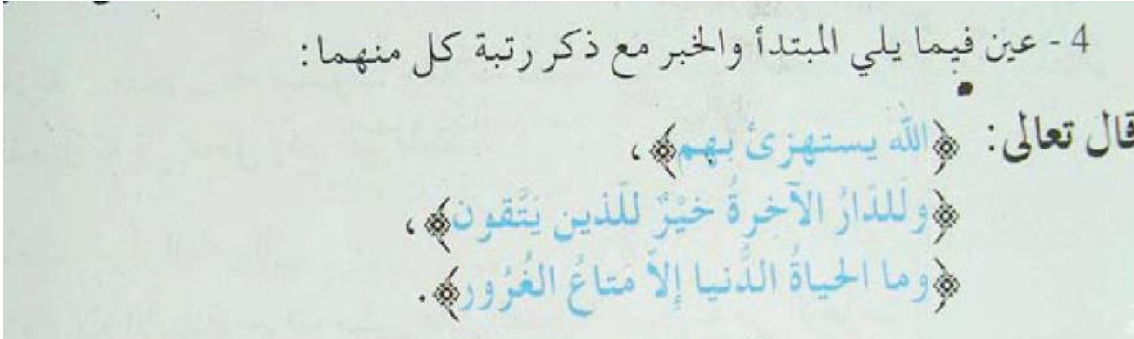 4 - عين فيما يلي المبتدأ والخبر مع ذكر رتبة كل منهما:
قال تعالى: ﴿الله يستهزئ بهم﴾،
﴿ولَلدَارُ الآخِرةُ خَيْرٌ للَّذين يَتَّقون﴾،
﴿وما الحياةُ الدُّنيا إِلاّ مَتاعُ الغُرُور﴾.